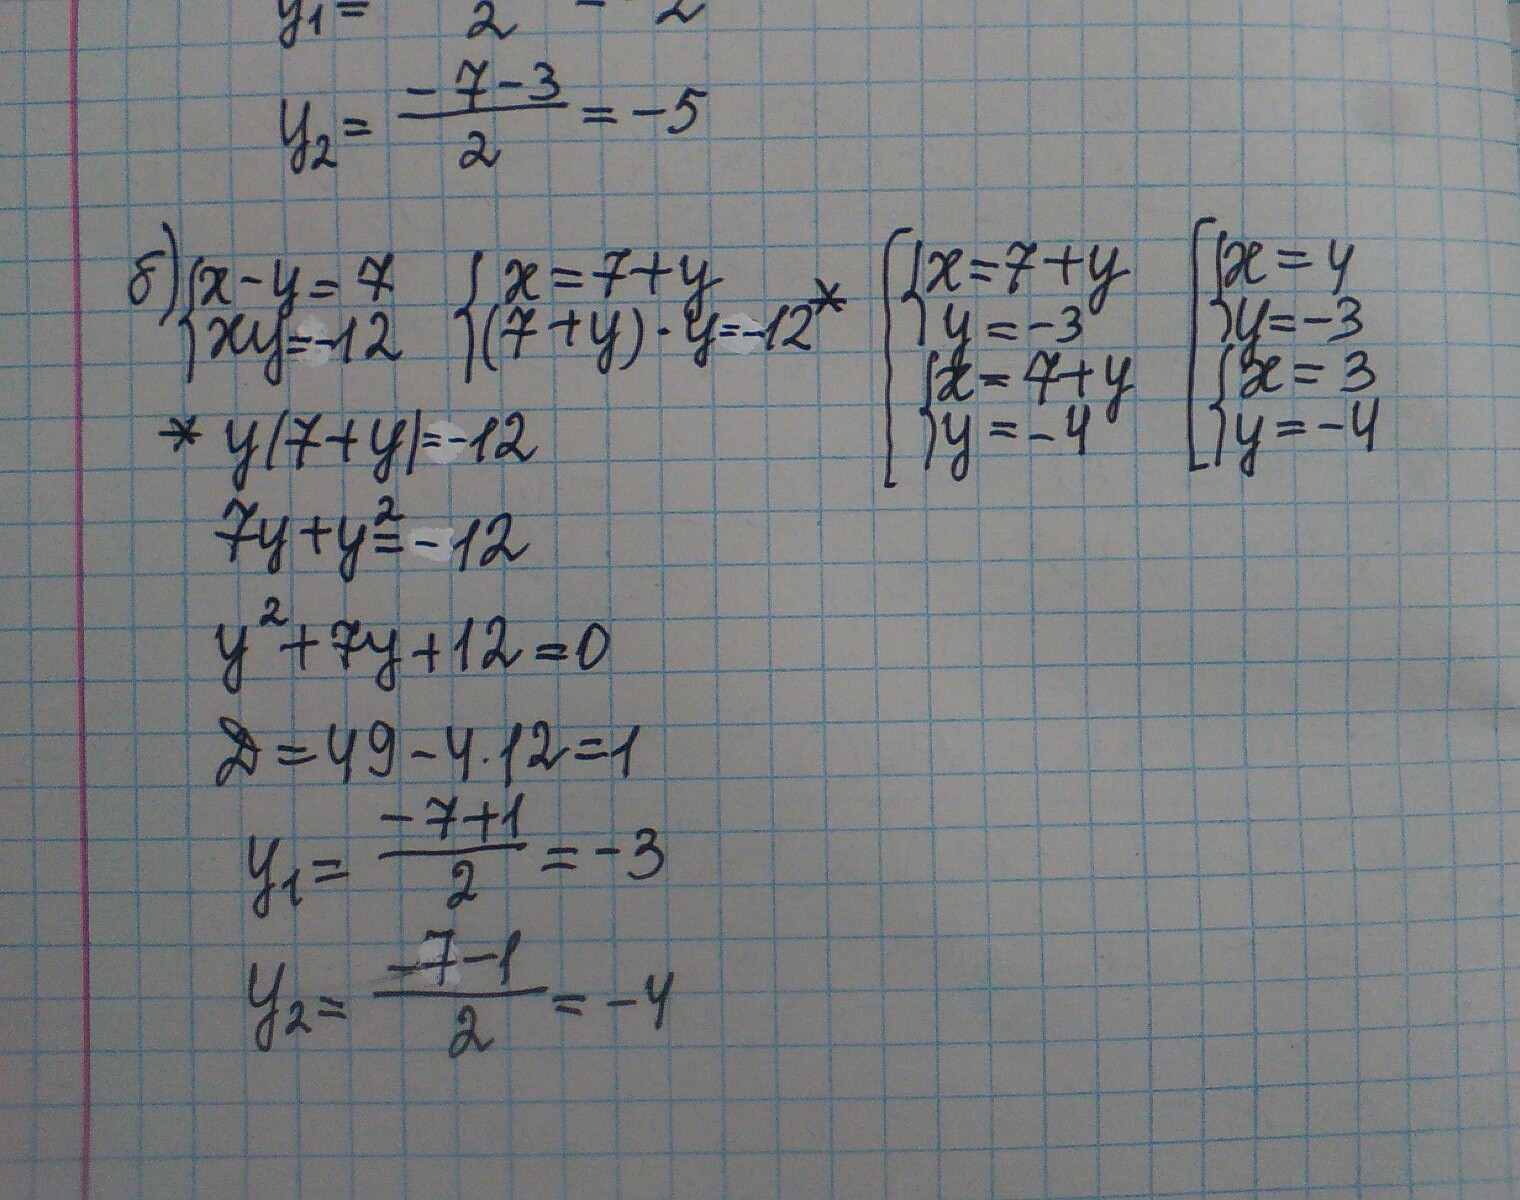 y₁ = 2 = -2
y₂ = (-7-3)/2 = -5
б) {x-y=7 {x=7+y [{x=7+y [{x=4
{xy=-12 {(7+y)·y=-12* {y=-3 {y=-3
{x=7+y {x=3
{y=-4 {y=-4
* y(7+y)=-12
7y+y²=-12
y²+7y+12=0
D=49-4·12=1
y₁ = (-7+1)/2 = -3
y₂ = (-7-1)/2 = -4